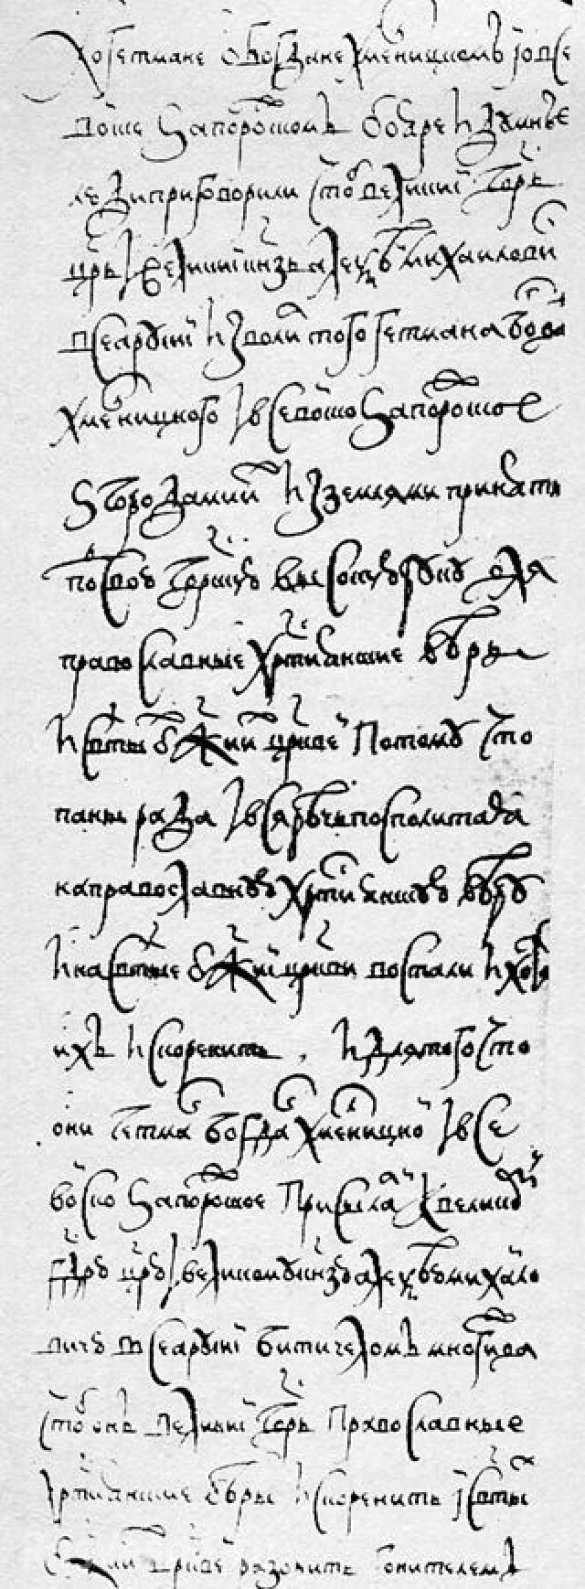 А о гетмане о Богдане Хмелницком и о все
войске Запорожском бояре и думные
люди приговорили чтоб великий государь
царь и великий князь Алексей Михайлович
всеа Русии изволил того гетмана Богдана
Хмелницкого и все войско Запорожское
з городами и з землями принять
под свою государскую высокую руку для
православные христианские веры
и святых божиих церквей потому что
паны рада и вся Речь Посполитая
на православную христианскую веру
и на святые божии церкви востали и хотят
их искоренить и для того что
они гетман Богдан Хмелницкой и все
войско Запорожское присылали к великому
государю царю и великому князю Алексею Михайло
вичю всеа Русии бити челом многижда
чтоб он великий государь православные
христианские веры искоренить и святых
божиих церквей разорить гонителем